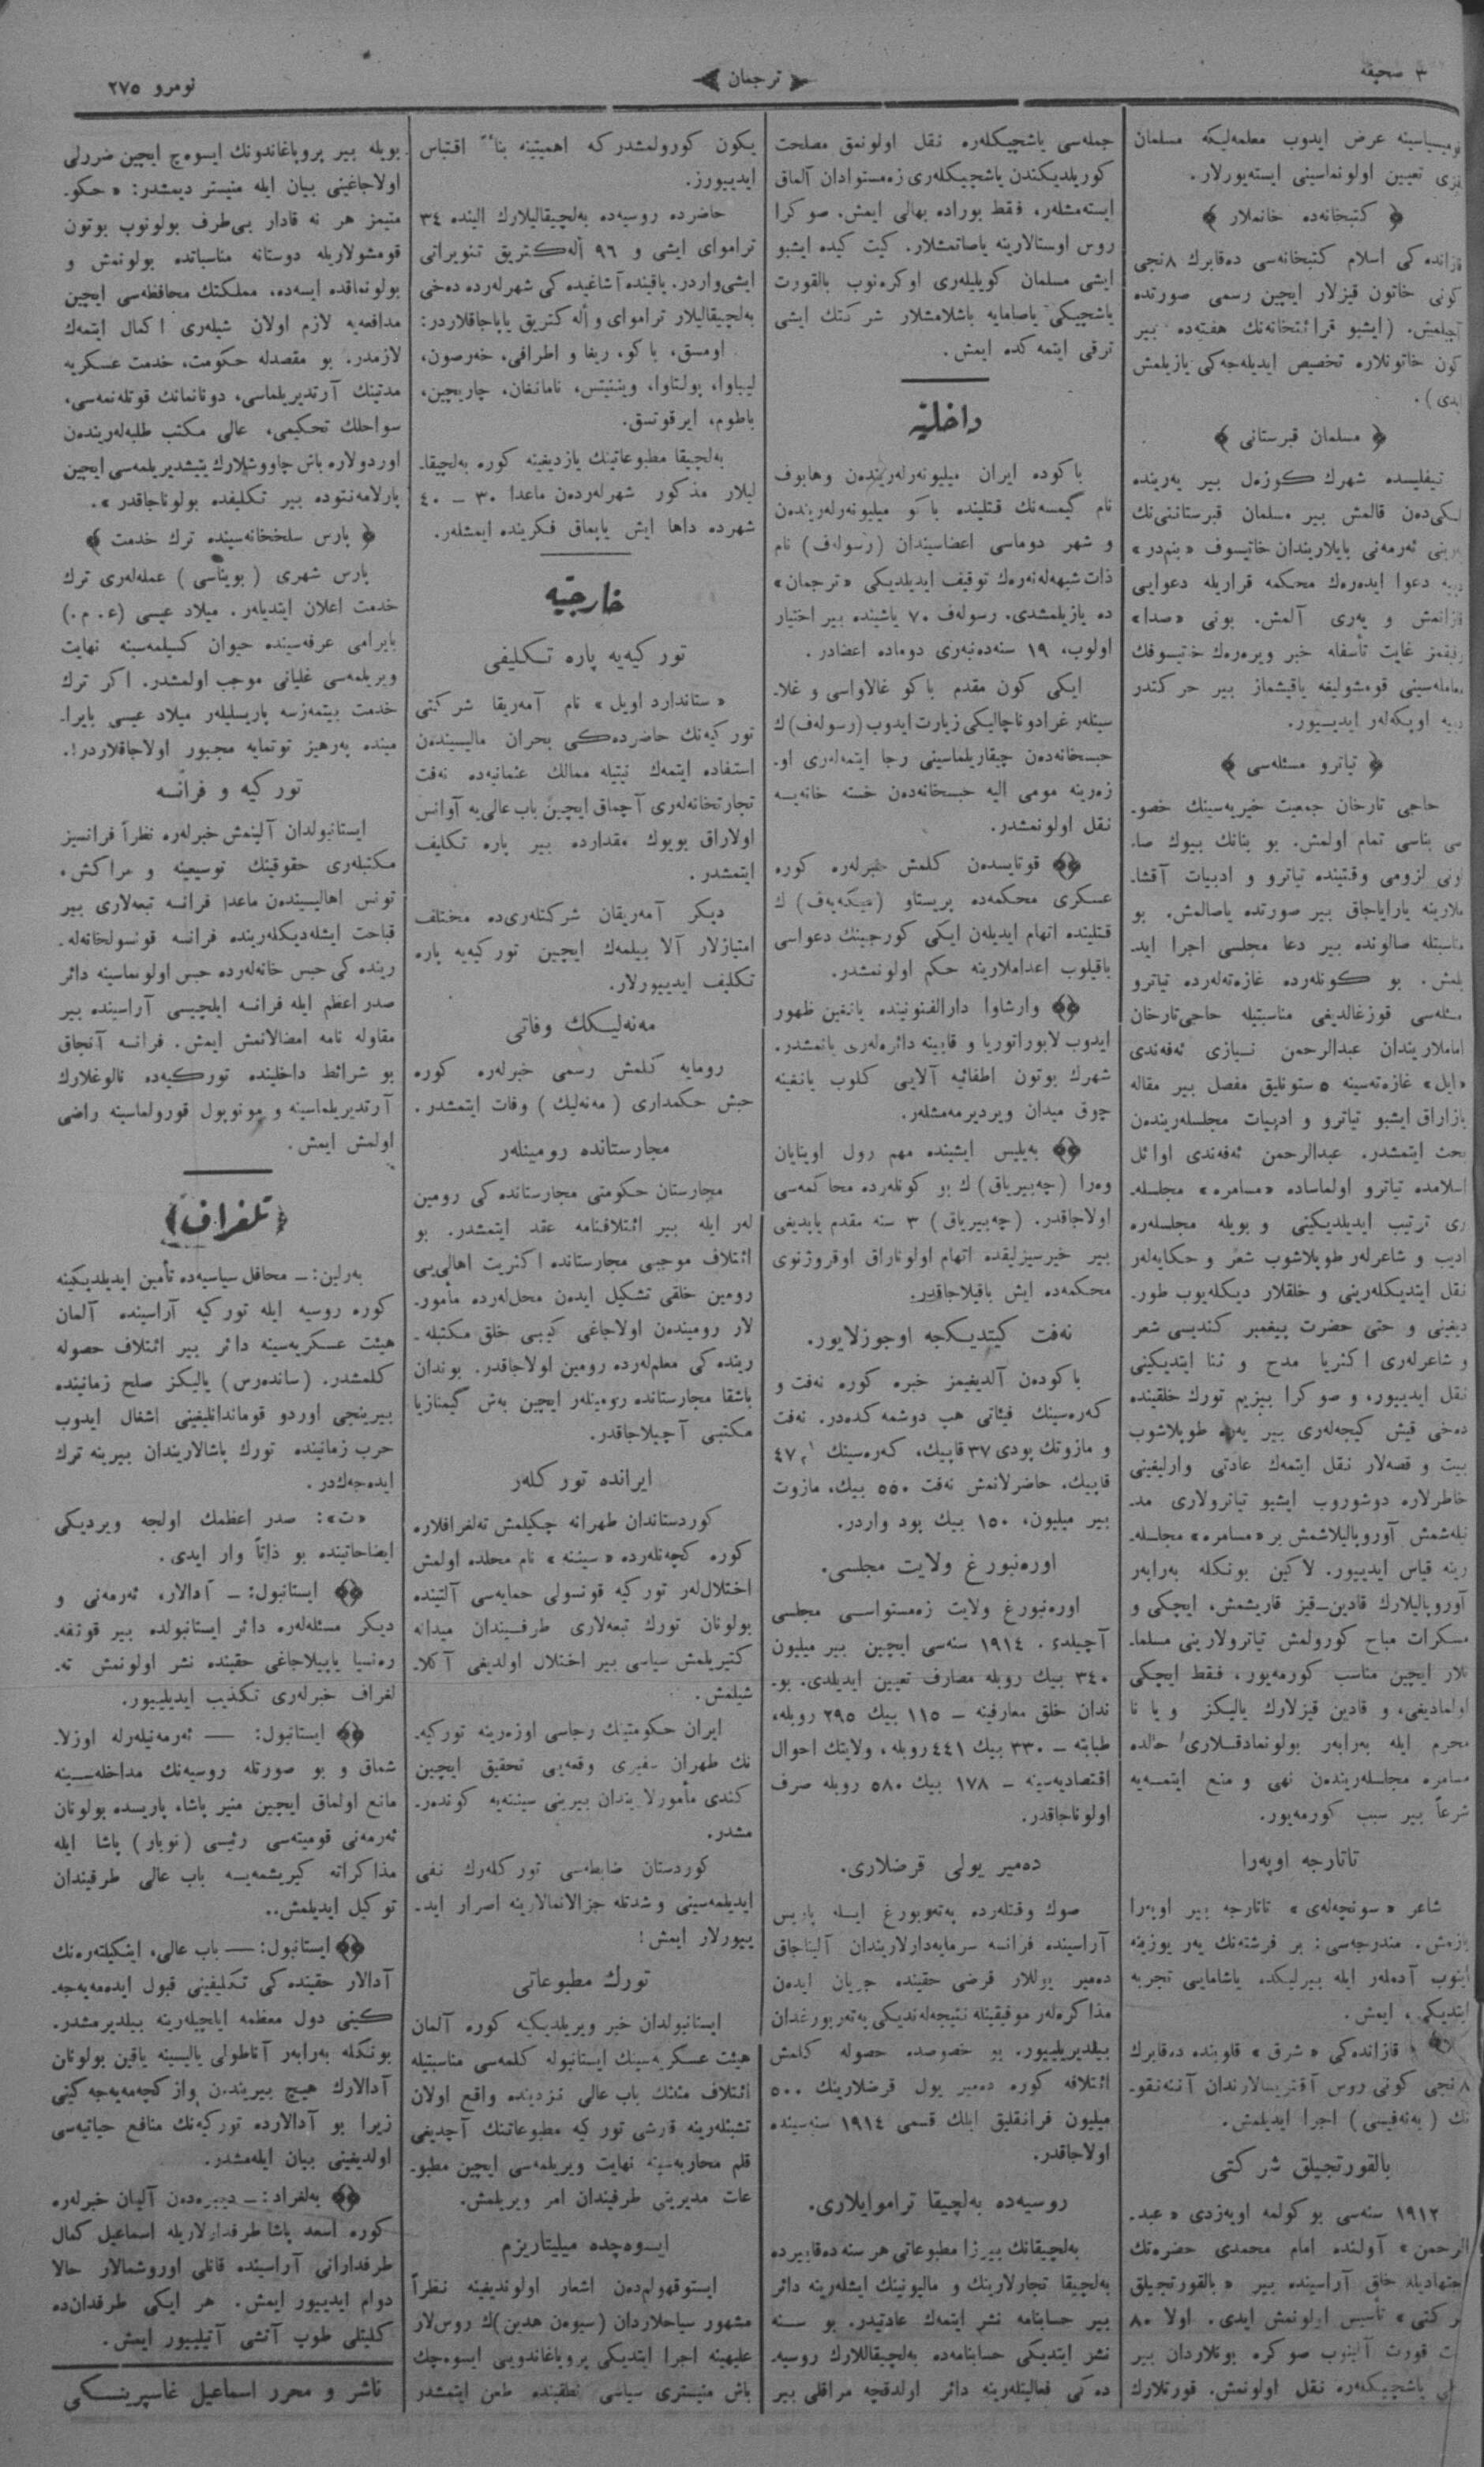 ٣ صحیفه
ترجمان
نومرو ٢٧٥
عرض ایدوب معلمه‌لیکه مسلمان
تعیین اولونماسینی ایسته‌یورلار.
کتبخانه‌ده خانملار
قازانده کی اسلام کتبخانه‌سی ده‌قابرك ٨نجی
کونی خاتون قیزلار ایچین رسمی صورتده
آچلمش. (ایشبو قرائتخانه‌نك هفته‌ده بیر
کون خاتونلاره تخصیص ایدیله‌جه‌کی یازیلمش
ایدی).
مسلمان قبرستانی
تیفلیسده شهرك کوزه‌ل بیر یه‌رینده
اسکی‌دن قالمش بیر مسلمان قبرستاننی‌نك
یرینی ئه‌رمه‌نی بایلاریندان خاتیسوف «بنم‌در»
دییه دعوا ایده‌رك محکمه قراریله دعوایی
قازانمش و یه‌ری آلمش. بونی «صدا»
رفیقمز غایت تأسفله خبر ویره‌رك خاتیسوفك
معامله‌سینی قومشولیغه یاقیشماز بیر حرکتدر
دییه اوپکه‌له‌ر ایدییور.
تیاترو مسئله‌سی
حاجی تارخان جمعیت خیریه‌سینك خصو-
سی بناسی تمام اولمش. بو بنانك بیوك صا-
لونی لزومی وقتینده تیاترو و ادبیات آقشا-
ملارینه یارایاجاق بیر صورتده یاصالمش. بو
مناسبتله صالونده بیر دعا مجلسی اجرا اید-
یلمش. بو کونلرده غازه‌ته‌لرده تیاترو
مسئله‌سی قوزغالدیغی مناسبتیله حاجی‌تارخان
اماملاریندان عبدالرحمن نیازی ئه‌فه‌ندی
«ایل» غازه‌ته‌سینه ٥ ستونلیق مفصل بیر مقاله
یازاراق ایشبو تیاترو و ادبیات مجلسلریندن
بحث ایتمشدر. عبدالرحمن ئه‌فه‌ندی اوائل
اسلامده تیاترو اولماساده «مسامره» مجلسله-
ری ترتیب ایدیلدیکینی و بویله مجلسلره
ادیب و شاعرلر طوپلاشوب شعر و حکایه‌لر
نقل ایتدیکلرینی و خلقلار دیکله‌یوب طور-
دیغینی و حتی حضرت پیغمبر کندیسی شعر
و شاعرلری اکثریا مدح و ثنا ایتدیکینی
نقل ایدییور، و صوکرا بیزیم تورك خلقینده
ده‌خی قیش کیجه‌لری بیر یه‌ره طوپلاشوب
بیت و قصه‌لار نقل ایتمه‌ك عادتی وارلیغینی
خاطرلاره دوشوروب ایشبو تیاترولاری مد-
نیله‌شمش آوروپالیلاشمش بر «مسامره» مجلسله-
رینه قیاس ایدییور. لاکین بونکله به‌رابه‌ر
آوروپالیلارك قادین-قیز قاریشمش، ایچکی و
مسکرات مباح کورولمش تیاترولارینی مسلما-
نلار ایچین مناسب کورمه‌یور، فقط ایچکی
اولمادیغی، و قادین قیزلارك یالیکز و یا نا
محرم ایله به‌رابه‌ر بولونمادقلاری حالده
مسامره مجلسلریندن نهی و منع ایتمه‌یه
شرعاً بیر سبب کورمه‌یور.
تاتارجه اوپه‌را
شاعر «سونچه‌له‌ی» تاتارجه بیر اوپه‌را
یازمش. مندرجه‌سی: بر فرشته‌نك یه‌ر یوزینه
اینوب آدم‌لر ایله بیرلیکده یاشامایی تجربه
ایتدیکی ایمش.
قازانده‌کی «شرق» قلوبنده ده‌قابرك
٨نجی کونی روس آقتریسالارندان آننه‌نقو-
نك (به‌نه‌فیسی) اجرا ایدیلمش.
بالقورتجیلق شرکتی
١٩١٢ سنه‌سی بوکولمه اویه‌زدی «عبد-
الرحمن» آولنده امام محمدی حضره‌تك
اجتهادیله خلق آراسینده بیر «بالقورتجیلق
شرکتی» تأسیس اولونمش ایدی. اولا ٨٠
قورت آلینوب صوکره بونلاردان بیر
یاشچیکلره نقل اولونمش. قورتلارك
جمله‌سی یاشچیکله‌ره نقل اولونمق مصلحت
کوریلدیکندن یاشچیکله‌ری زه‌مستوادان آلماق
ایسته‌مشله‌ر، فقط بوراده بهالی ایمش. صوکرا
روس اوستالارینه یاصاتمشلار. کیت کیده ایشبو
ایشی مسلمان کویلیله‌ری اوکره‌نوب بالقورت
یاشچیکی یاصامایه باشلامشلار شرکتك ایشی
ترقی ایتمه‌کده ایمش.
داخلیه
باکوده ایران میلیونه‌رلریندن وهابوف
نام کیمسه‌نك قتلینده باکو میلیونه‌رلریندن
و شهر دوماسی اعضاسیندان (رسوله‌ف) نام
ذات شبهه‌له‌نه‌رك توقیف ایدیلدیکی «ترجمان»
ده یازیلمشدی. رسوله‌ف ٧٠ یاشینده بیر اختیار
اولوب، ١٩ سنه‌ده‌نبه‌ری دوماده اعضادر.
ایکی کون مقدم باکو غالاواسی و غلا-
سینله‌ر غرادوناچالیکی زیارت ایدوب (رسوله‌ف)ك
حبسخانه‌دن چیقاریلماسینی رجا ایتمه‌لری او-
زه‌رینه مومی الیه حبسخانه‌دن خسته خانه‌یه
نقل اولونمشدر.
قوتایسدن کلمش خبرلره کوره
عسکری محکمه‌ده پریستاو (میکه‌یه‌ف)ك
قتلینده اتهام ایدیلن ایکی کورجینك دعواسی
باقیلوب اعداملارینه حکم اولونمشدر.
وارشاوا دارالفنونینده یانغین ظهور
ایدوب لابوراتوریا و قابینه دائره‌لری یانمشدر.
شهرك بوتون اطفائیه آلایی کلوب یانغینه
چوق میدان ویردیرمه‌مشلر.
به‌یلیس ایشینده مهم رول اوینایان
وه‌را (چه‌بیریاق)ك بو کونلرده محاکمه‌سی
اولاجاقدر. (چه‌بیریاق) ٣ سنه مقدم یاپدیغی
بیر خیرسیزلیقده اتهام اولوناراق اوقروژنوی
محکمه‌ده ایش باقیلاجاقدر.
نه‌فت کیتدیکجه اوجوزلایور.
باکودن آلدیغیمز خبره کوره نه‌فت و
که‌ره‌سینك فیئاتی هب دوشمه‌کده‌در. نه‌فت
و مازوتك پودی ٣٧ قاپیك، که‌ره‌سینك ٤٧
قاپیك. حاضرلانمش نه‌فت ٥٥٠ بیك، مازوت
بیر میلیون، ١٥٠ بیك پود واردر.
اوره‌نبورغ ولایت مجلسی.
اوره‌نبورغ ولایت زه‌مستواسی مجلسی
آچیلدی. ١٩١٤ سنه‌سی ایچین بیر میلیون
٣٤٠ بیك روبله مصارف تعیین ایدیلدی. بو-
ندان خلق معارفینه — ١١٥ بیك ٢٩٥ روبله،
طبابته — ٣٣٠ بیك ٤٤١ روبله، ولایتك احوال
اقتصادیه‌سینه — ١٧٨ بیك ٥٨٠ روبله صرف
اولوناجاقدر.
ده‌میر یولی قرضلاری.
صوك وقتلرده په‌ته‌ربورغ ایله پاریس
آراسینده فرانسه سرمایه‌دارلاریندان آلیناجاق
ده‌میر یوللار قرضی حقینده جریان ایدن
مذاکره‌لر موفقیتله نتیجه‌له‌ندیکی په‌ته‌ربورغدان
بیلدیریلییور. بو خصوصده حصوله کلمش
ائتلافه کوره ده‌میر یول قرضلارینك ٥٠٠
میلیون فرانقلیق ایلك قسمی ١٩١٤ سنه‌سینده
اولاجاقدر.
روسیه‌ده به‌لچیقا تراموایلاری.
به‌لچیقانك بیرژا مطبوعاتی هر سنه ده‌قابیرده
به‌لچیقا تجارلارینك و مالیونینك ایشلرینه دائر
بیر حسابنامه نشر ایتمه‌ك عادتیدر. بو سنه
نشر ایتدیکی حسابنامه‌ده به‌لچیقالیلارك روسیه-
ده کی فعالیتلرینه دائر اولدقچه مراقلی بیر
یکون کورولمشدرکه اهمیتینه بناءً اقتباس
ایدییورز.
حاضرده روسیه‌ده به‌لچیقالیلارك الینده ٣٤
تراموای ایشی و ٩٦ أله‌کتریق تنویراتی
ایشی‌واردر. یاقینده آشاغیده کی شهرلرده ده‌خی
به‌لچیقالیلار تراموای و أله‌کتریق یاپاجاقلاردر:
اومسق، باکو، ریغا و اطرافی، خه‌رصون،
لیباوا، پولتاوا، ویتنیتس، نامانغان، چاریچین،
باطوم، ایرقوتسق.
به‌لچیقا مطبوعاتینك یازدیغینه کوره به‌لچیقا-
لیلار مذکور شهرلردن ماعدا ٣٠ — ٤٠
شهرده داها ایش یاپماق فکرینده ایمشلر.
خارجیه
تورکیه‌یه پاره تکلیفی
«ستاندارد اویل» نام آمه‌ریقا شرکتی
تورکیه‌نك حاضرده‌کی بحران مالیسیندن
استفاده ایتمه‌ك نیتیله ممالك عثمانیه‌ده نه‌فت
تجارتخانه‌لری آچماق ایچین باب عالی‌یه آوانس
اولاراق بویوك مقدارده بیر پاره تکلیف
ایتمشدر.
دیکر آمه‌ریقان شرکتلری‌ده مختلف
امتیازلار آلا بیلمه‌ك ایچین تورکیه‌یه پاره
تکلیف ایدییورلار.
مه‌نه‌لیکك وفاتی
رومایه کلمش رسمی خبرلره کوره
حبش حکمداری (مه‌نه‌لیك) وفات ایتمشدر.
مجارستانده رومینله‌ر
مجارستان حکومتی مجارستانده کی رومین
لر ایله بیر ائتلافنامه عقد ایتمشدر. بو
ائتلاف موجبی مجارستانده اکثریت اهالی‌یی
رومین خلقی تشکیل ایدن محل‌لرده مأمور-
لار رومیندن اولاجاغی کیبی خلق مکتبله-
رینده کی معلم‌لرده رومین اولاجاقدر. بوندان
باشقا مجارستانده رومینلر ایچین به‌ش گیمنازیا
مکتبی آچیلاجاقدر.
ایرانده تورکله‌ر
کوردستاندان طهرانه چکیلمش ته‌لغرافلاره
کوره کچه‌نلرده «سیننه» نام محلده اولمش
اختلال‌لر تورکیه قونسولی حمایه‌سی آلتینده
بولونان تورك تبعه‌لاری طرفیندان میدانه
کتیریلمش سیاسی بیر اختلال اولدیغی آکلا-
شیلمش.
ایران حکومتینك رجاسی اوزه‌رینه تورکیه-
نك طهران سفیری وقعه‌یی تحقیق ایچین
کندی مأمورلاریندان بیرینی سیننه‌یه کونده‌ر-
مشدر.
کوردستان ضابطه‌سی تورکلرك نفی
ایدیلمه‌سینی و شدتله جزالانمالارینه اصرار اید-
ییورلار ایمش!
تورك مطبوعاتی
ایستانبولدان خبر ویریلدیکینه کوره آلمان
هیئت عسکریه‌سینك ایستانبوله کلمه‌سی مناسبتیله
ائتلاف مثلث باب عالی نزدینده واقع اولان
تشبثلرینه قارشی تورکیه مطبوعاتنك آچدیغی
قلم محاربه‌سینه نهایت ویریلمه‌سی ایچین مطبو-
عات مدیریتی طرفیندان امر ویریلمش.
ایسوه‌چده میلیتاریزم
ایستوقهولم‌دن اشعار اولوندیغینه نظراً
مشهور سیاحلاردان (سیوه‌ن هدین)ك روس‌لار
علیهینه اجرا ایتدیکی پروپاغاندویی ایسوه‌چك
باش منیستری سیاسی نطقینده طعن ایتمشدر
بویله بیر پروپاغاندونك ایسوه‌چ ایچین ضررلی
اولاجاغینی بیان ایله منیستر دیمشدر: «حکو-
متیمز هر نه قادار بی‌طرف بولونوب بوتون
قومشولاریله دوستانه مناسباتده بولونمش و
بولونماقده ایسه‌ده، مملکتك محافظه‌سی ایچین
مدافعه‌یه لازم اولان شیلری اکمال ایتمه‌ك
لازمدر. بو مقصدله حکومت، خدمت عسکریه
مدتینك آرتدیریلماسی، دونانمانك قوتله‌نمه‌سی،
سواحلك تحکیمی، عالی مکتب طلبه‌لریندن
اوردولاره باش چاووشلارك یتیشدیریلمه‌سی ایچین
پارلامه‌نتوده بیر تکلیفده بولوناجاقدر».
پارس سلخخانه‌سینده ترك خدمت
پارس شهری (بویناسی) عمله‌لری ترك
خدمت اعلان ایتدیلر. میلاد عیسی (ع. م.)
بایرامی عرفه‌سینده حیوان کسیلمه‌سینه نهایت
ویریلمه‌سی غلیانی موجب اولمشدر. اکر ترك
خدمت بیتمه‌زسه پاریسلیلر میلاد عیسی بایرا-
مینده په‌رهیز توتمایه مجبور اولاجاقلاردر!.
تورکیه و فرانسه
ایستانبولدان آلینمش خبرلره نظراً فرانسیز
مکتبلری حقوقینك توسیعینه و مراکش،
تونس اهالیسیندن ماعدا فرانسه تبعه‌لاری بیر
قباحت ایشله‌دیکلرینده فرانسه قونسولخانه‌له-
رینده کی حبس خانه‌لرده حبس اولونماسینه دائر
صدر اعظم ایله فرانسه ایلچیسی آراسینده بیر
مقاوله نامه امضالانمش ایمش. فرانسه آنجاق
بو شرائط داخلینده تورکیه‌ده نالوغلارك
آرتدیریلماسینه و مونوپول قورولماسینه راضی
اولمش ایمش.
تلغراف
به‌رلین: — محافل سیاسیه‌ده تأمین ایدیلدیکینه
کوره روسیه ایله تورکیه آراسینده آلمان
هیئت عسکریه‌سینه دائر بیر ائتلاف حصوله
کلمشدر. (سانده‌رس) یالیکز صلح زمانینده
بیرینجی اوردو قوماندانلیغینی اشغال ایدوب
حرب زمانینده تورك پاشالاریندان بیرینه ترك
ایده‌جه‌ك‌در.
«ت»: صدر اعظمك اولجه ویردیکی
ایضاحاتینده بو ذاتاً وار ایدی.
ایستانبول: — آدالار، ئه‌رمه‌نی و
دیکر مسئله‌لره دائر ایستانبولده بیر قونفه-
ره‌نسیا یاپیلاجاغی حقینده نشر اولونمش ته-
لغراف خبرلری تکذیب ایدیلییور.
ایستانبول: — ئه‌رمه‌نیلرله اوزلا-
شماق و بو صورتله روسیه‌نك مداخله‌سینه
مانع اولماق ایچین منیر پاشا، پاریسده بولونان
ئه‌رمه‌نی قومیته‌سی رئیسی (نوبار) پاشا ایله
مذاکراته کیریشمه‌یه باب عالی طرفیندان
توکیل ایدیلمش..
ایستانبول: — باب عالی، اینکیلته‌ره‌نك
آدالار حقینده کی تکلیفینی قبول ایده‌مه‌یه‌جه-
کینی دول معظمه ایلچیلرینه بیلدیرمشدر.
بونکله به‌رابه‌ر آناطولی یالیسینه یاقین بولونان
آدالارك هیچ بیریندن وازکچه‌مه‌یه‌جه‌کینی
زیرا بو آدالارده تورکیه‌نك منافع حیاتیه‌سی
اولدیغینی بیان ایله‌مشدر.
به‌لغراد: — دن آلنان خبرلره
کوره اسعد پاشا طرفدارلاریله اسماعیل کمال
طرفدارانی آراسینده قانلی اوروشمالار حالا
دوام ایدییور ایمش. هر ایکی طرفدان‌ده
کلیتلی طوب آتشی آتیلییور ایمش.
ناشر و محرر اسماعیل غاسپرینسکی